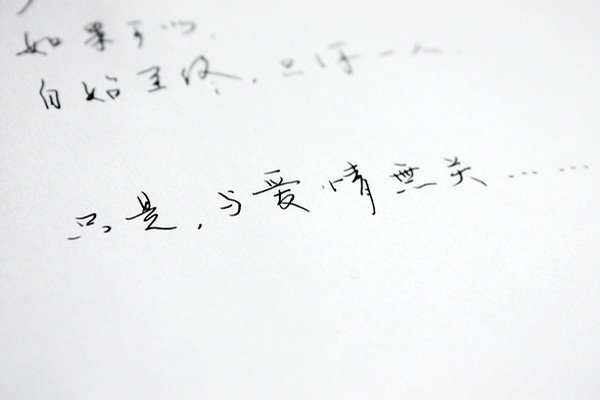 如果可以
自始至终，只一人
只是，与爱情無关……